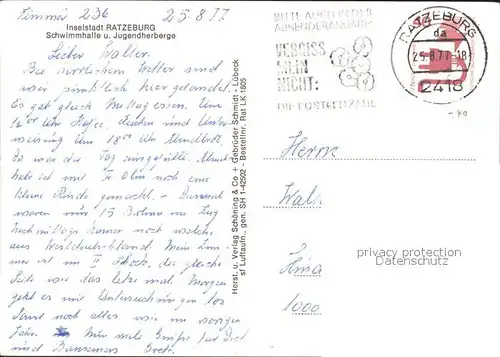 Zimmer 236 25.8.77
Inselstadt RATZEBURG
Schwimmhalle u. Jugendherberge
Lieber Walter.
Bei herrlichem Wetter sind
wir pünktlich hier gelandet.
Es gab gleich Mittagessen. Um
Uhr Kaffee, Kuchen und
weisung. Um 18 Uhr Abendbrot.
So war der Tag ausgefüllt.
habe ich mit noch eine
kleine Runde gemacht. –
waren nur 15 im Zug
Nachmittags kamen noch welche
aus Westdeutschland. Mein Zim-
mer ist im II Stock, die gleiche
Seite wie das letzte mal. Morgen
geht es mit Untersuchungen los
Sonst noch alles wie im vorigen
Jahr. Nun viele Grüße für Dich
und
Horst. u. Verlag Schöning & Co + Gebrüder Schmidt - Lübeck
sf Luftaufn., gen. SH 1-42502 - Bestellnr. Rat LK 1805
BITTE AUCH IN DER
ABSENDERANGABE
VERGISS
MEIN
NICHT:
DIE POSTLEITZAHL
RATZEBURG
da
25.8.77-18
2418
-40
Herrn
Wal
1000
privacy protection
Datenschutz